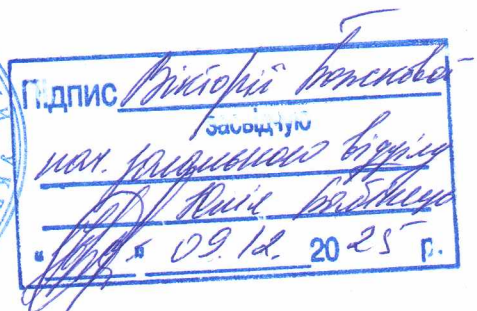 Підпис Вікторії Божкової
засвідчую
нач. загального відділу
Юлія
" " 09.12. 2025 р.